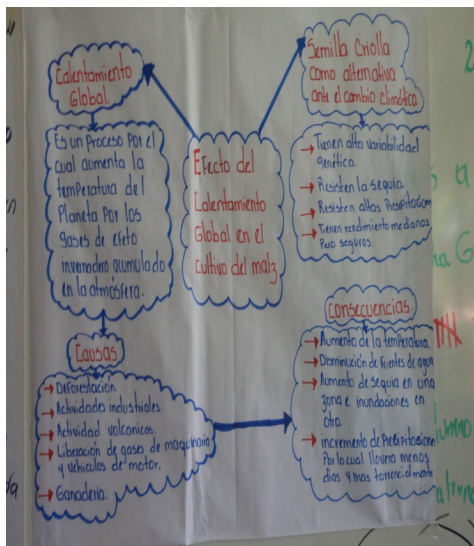 Calentamiento
Global.
Es un Proceso Por el
cual aumenta la
temperatura del
Planeta Por los
gases de efeto
invernadero acumulado
en la atmósfera.
Causas
Deforestación.
Actividades industriales.
Actividad volcanicos.
Liberación de gases de maquinaria
y vehiculos de motor.
Ganaderia.
Efecto del
Calentamiento
Global en el
Cultivo del maiz
Semilla Criolla
como alternativa
ante el cambio climática.
Tienen alta variabilidad
genética.
Resisten la sequia.
Resisten altas
Tienen rendimiento medianos
Pero seguros
Consecuencias.
Aumento de la temperatura.
Disminución de fuentes de agua
Aumento de sequia en una
zona e inundaciones en
otra.
incremento de
Por lo cual llovera menos
dias y mas torrencialmente